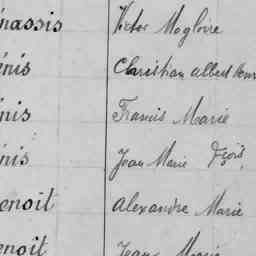 nassis Victor Magloire
énis Christian Albert Henri
nis Francis Marie
nis Jean Marie Fçois
enoit Alexandre Marie
enoit Jean Marie